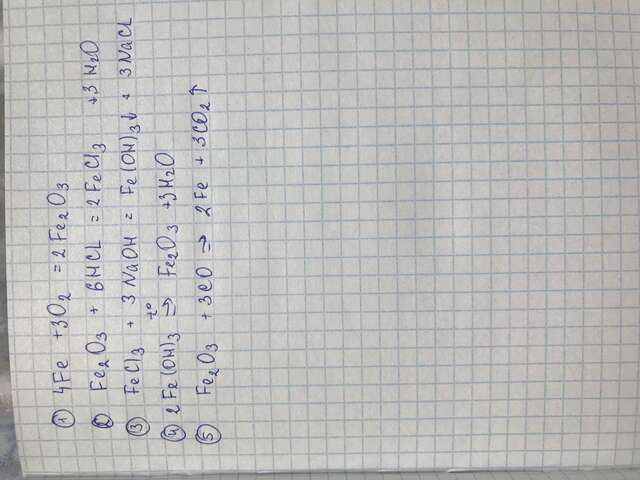 ① 4Fe + 3O₂ = 2Fe₂O₃
② Fe₂O₃ + 6HCL = 2FeCl₃ + 3H₂O
③ FeCl₃ + 3NaOH = Fe(OH)₃↓ + 3NaCL
④ 2Fe(OH)₃ t°⇒ Fe₂O₃ + 3H₂O
⑤ Fe₂O₃ + 3CO ⇒ 2Fe + 3CO₂↑